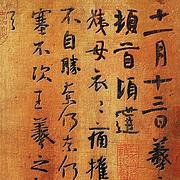 十一月十三日羲
頓首頃遘
姨母哀〻痛摧
不自勝奈何奈何
塞不次王羲之